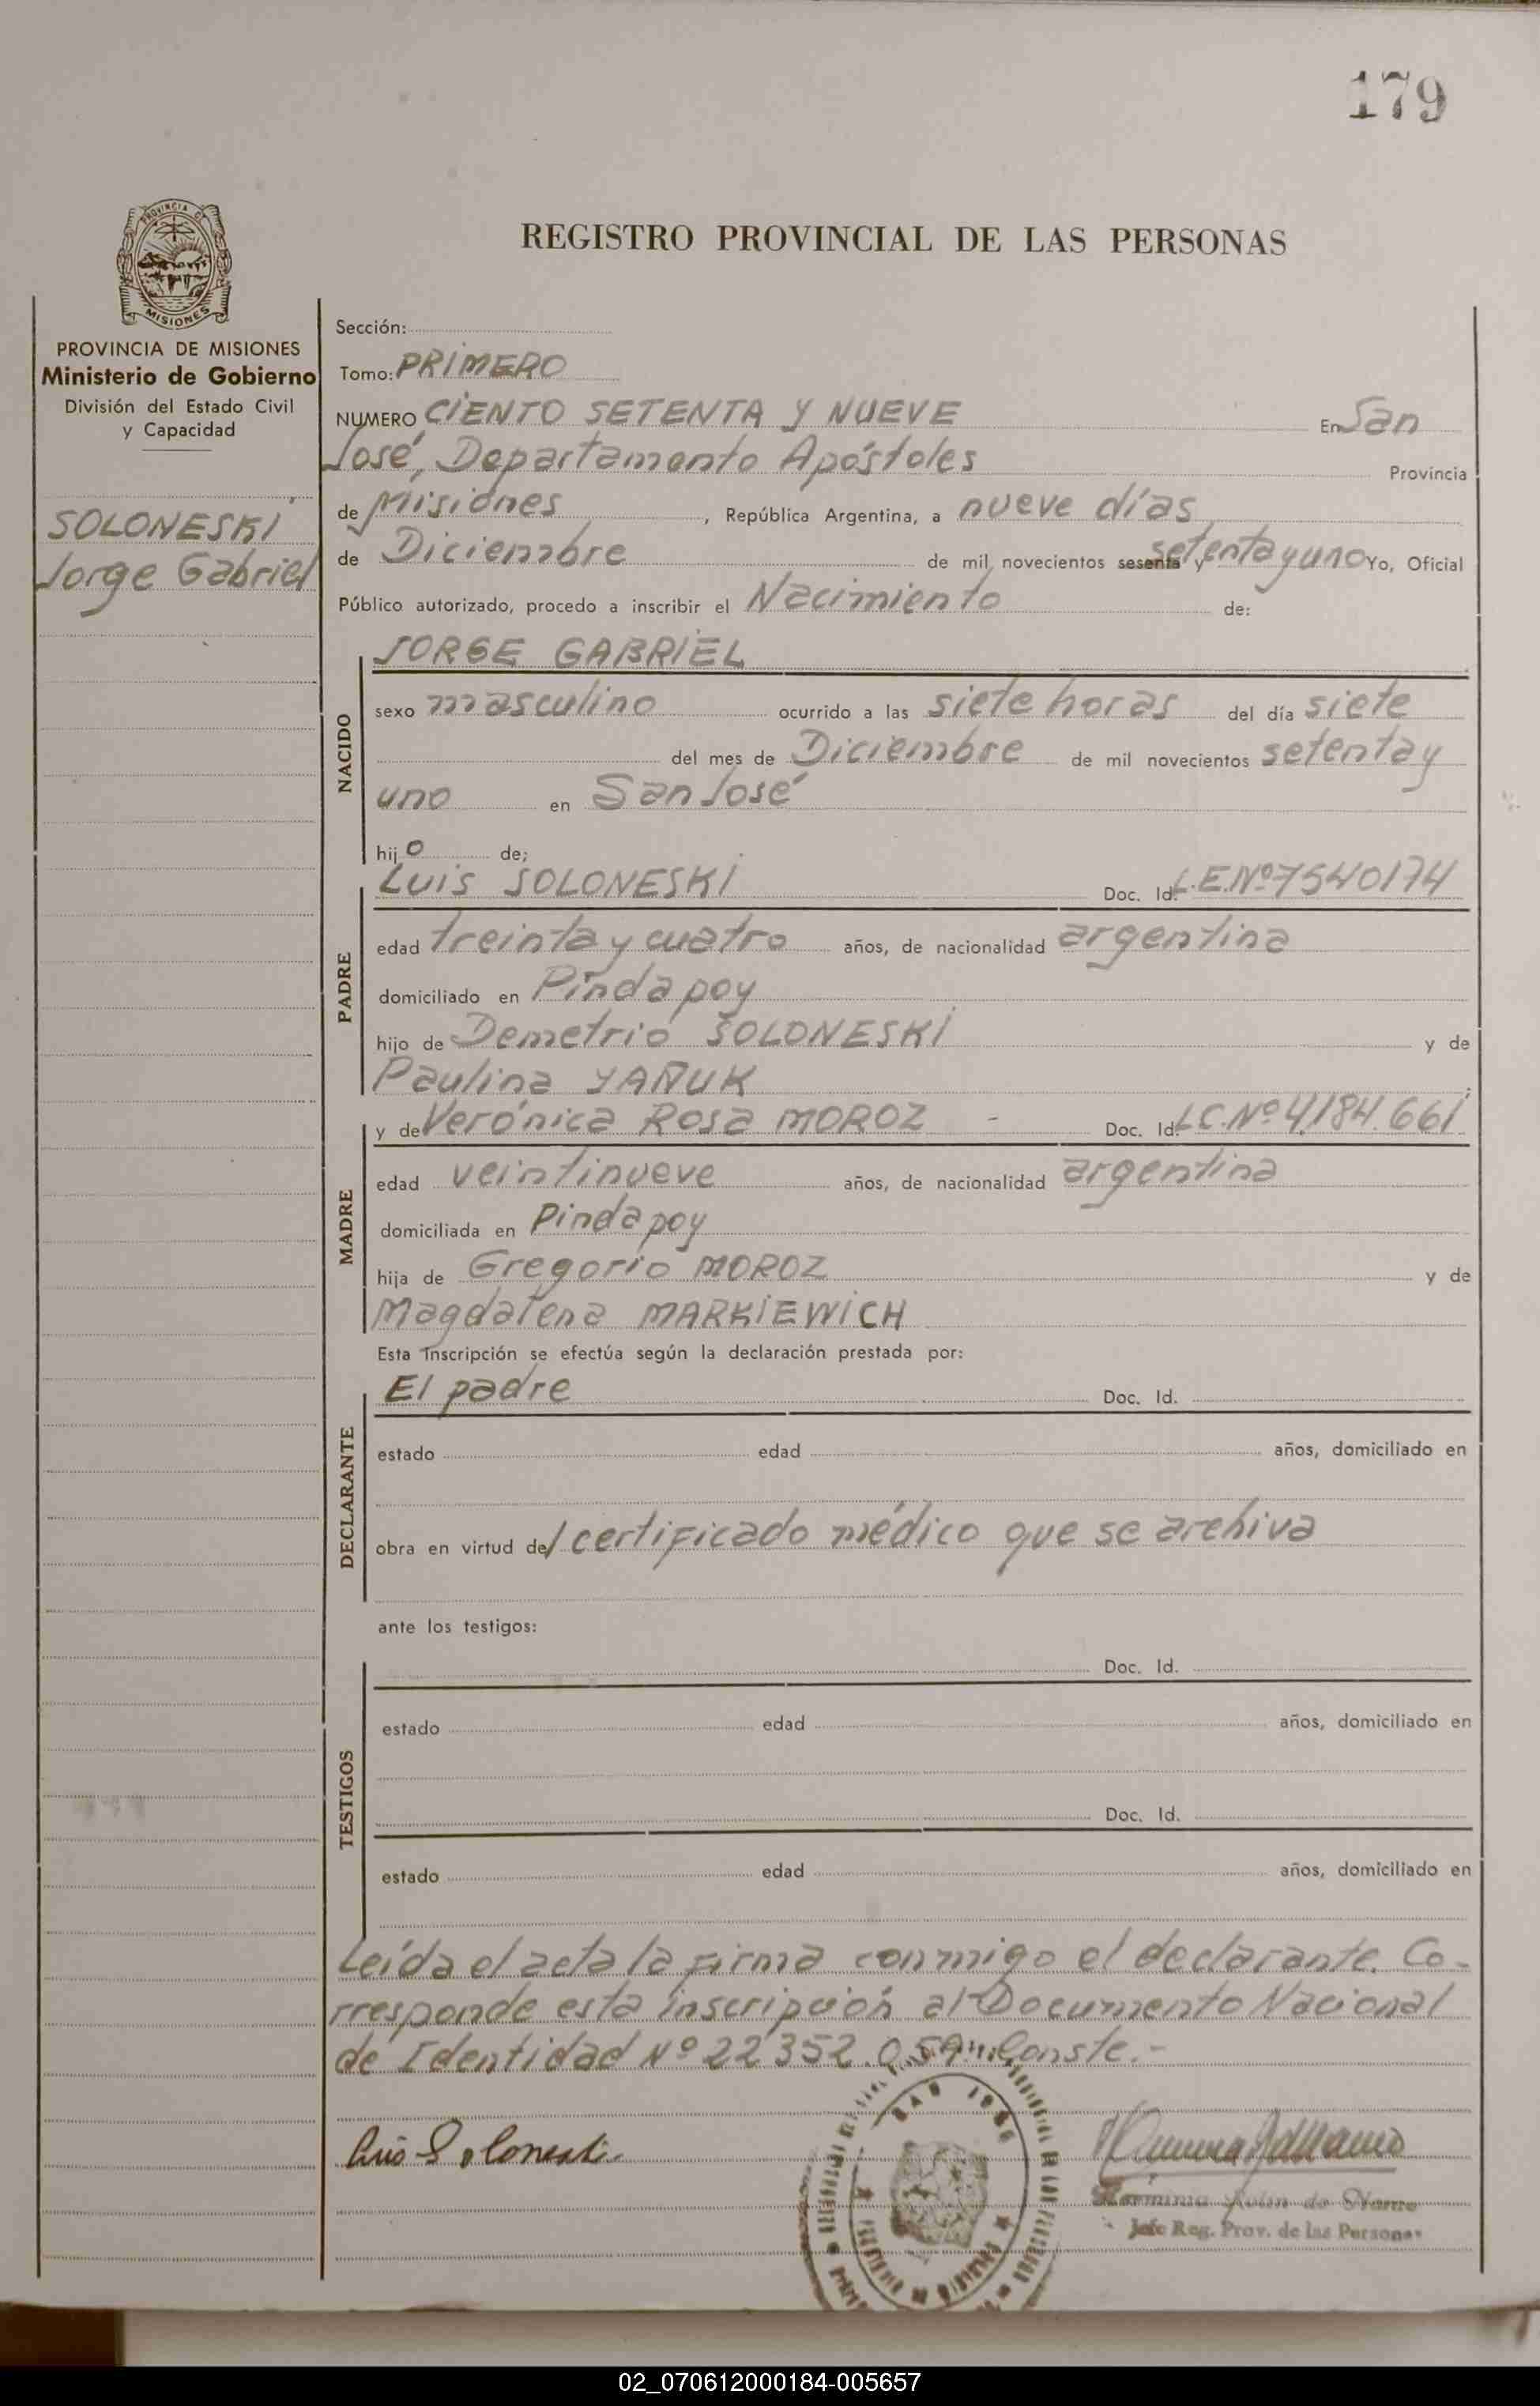 179
PROVINCIA DE
MISIONES
REGISTRO PROVINCIAL DE LAS PERSONAS
PROVINCIA DE MISIONES
Ministerio de Gobierno
División del Estado Civil
y Capacidad
SOLONESKI
Jorge Gabriel
Sección:
Tomo: PRIMERO
NUMERO CIENTO SETENTA Y NUEVE En San
José, Departamento Apóstoles Provincia
de Misiones, República Argentina, a nueve días
de Diciembre de mil novecientos sesenta y setenta y uno Yo, Oficial
Público autorizado, procedo a inscribir el Nacimiento de:
NACIDO
JORGE GABRIEL
sexo masculino ocurrido a las siete horas del día siete
del mes de Diciembre de mil novecientos setenta y
uno en San José
hijo de;
PADRE
Luis SOLONESKI Doc. Id. L.E.Nº 7540174
edad treinta y cuatro años, de nacionalidad argentina
domiciliado en Pindapoy
hijo de Demetrio SOLONESKI y de
Paulina YAÑUK
MADRE
y de Verónica Rosa MOROZ - Doc. Id. L.C.Nº 4.184.661
edad veintinueve años, de nacionalidad argentina
domiciliada en Pindapoy
hija de Gregorio MOROZ y de
Magdalena MARKIEWICH
Esta Inscripción se efectúa según la declaración prestada por:
DECLARANTE
El padre Doc. Id.
estado edad años, domiciliado en
obra en virtud del certificado médico que se archiva
ante los testigos:
TESTIGOS
Doc. Id.
estado edad años, domiciliado en
Doc. Id.
estado edad años, domiciliado en
Leída el acta la firma conmigo el declarante. Co-
rresponde esta inscripción al Documento Nacional
de Identidad Nº 22352.059. Conste.-
Luis Soloneski
de
Jefe Reg. Prov. de las Personas
02_070612000184-005657